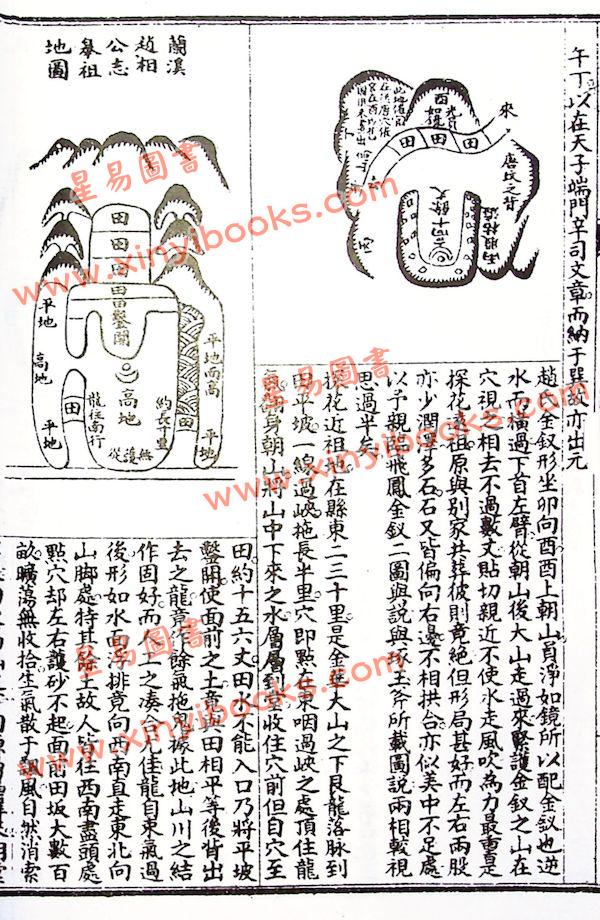 午丁以在天子端門辛司文章而納于巽故亦出元
來
唐坟之背
酉
田
田
田
趙氏金釵形坐卯向酉酉上朝山頁淨如鏡所以配金釵也逆
水而橫過下首左臂從朝山後大山走過來緊護金釵之山在
穴視之相去不過數丈貼切親近不使水走風吹為力最重是
探花遠祖原與別家共葬彼則竟絕但形局甚好而左右兩股
亦少潤澤多石石又皆偏向右邊不相拱合亦似美中不足處
以予親臨飛鳳金釵二圖與說與琢玉斧所載圖說兩相較視
思過半矣
探花近祖地在縣東二三十里是金華大山之下艮龍落脉到
田平坡一線過峽拖長半里穴即點在東咽過峽之處頂住龍
氣翻身朝山將山中下來之水層層到堂收住穴前但自穴至
蘭溪
趙相
公志
皋祖
地圖
田
田
田
田
田鑿開
高地
約長半里
龍往南行
無護從
平地
高地
平地
田
平地而高
田
平地
田約十五六丈田水不能入口乃將平坡
鑿開使面前之土竟與田相平等後背出
去之龍竟作餘氣拖鬼據此地山川之結
作固好而人工之湊合尤佳龍自東氣過
後形如水面浮排竟向西南直走東北向
山腳處特其餘土故人皆在西南盡頭處
點穴却左右護砂不起面前田坂大數百
畝曠蕩無收拾生氣散于飄風自然消索
星易圖書
www.xinyibooks.com
星易圖書
www.xinyibooks.com
星易圖書
www.xinyibooks.com
星易圖書
www.xinyibooks.com